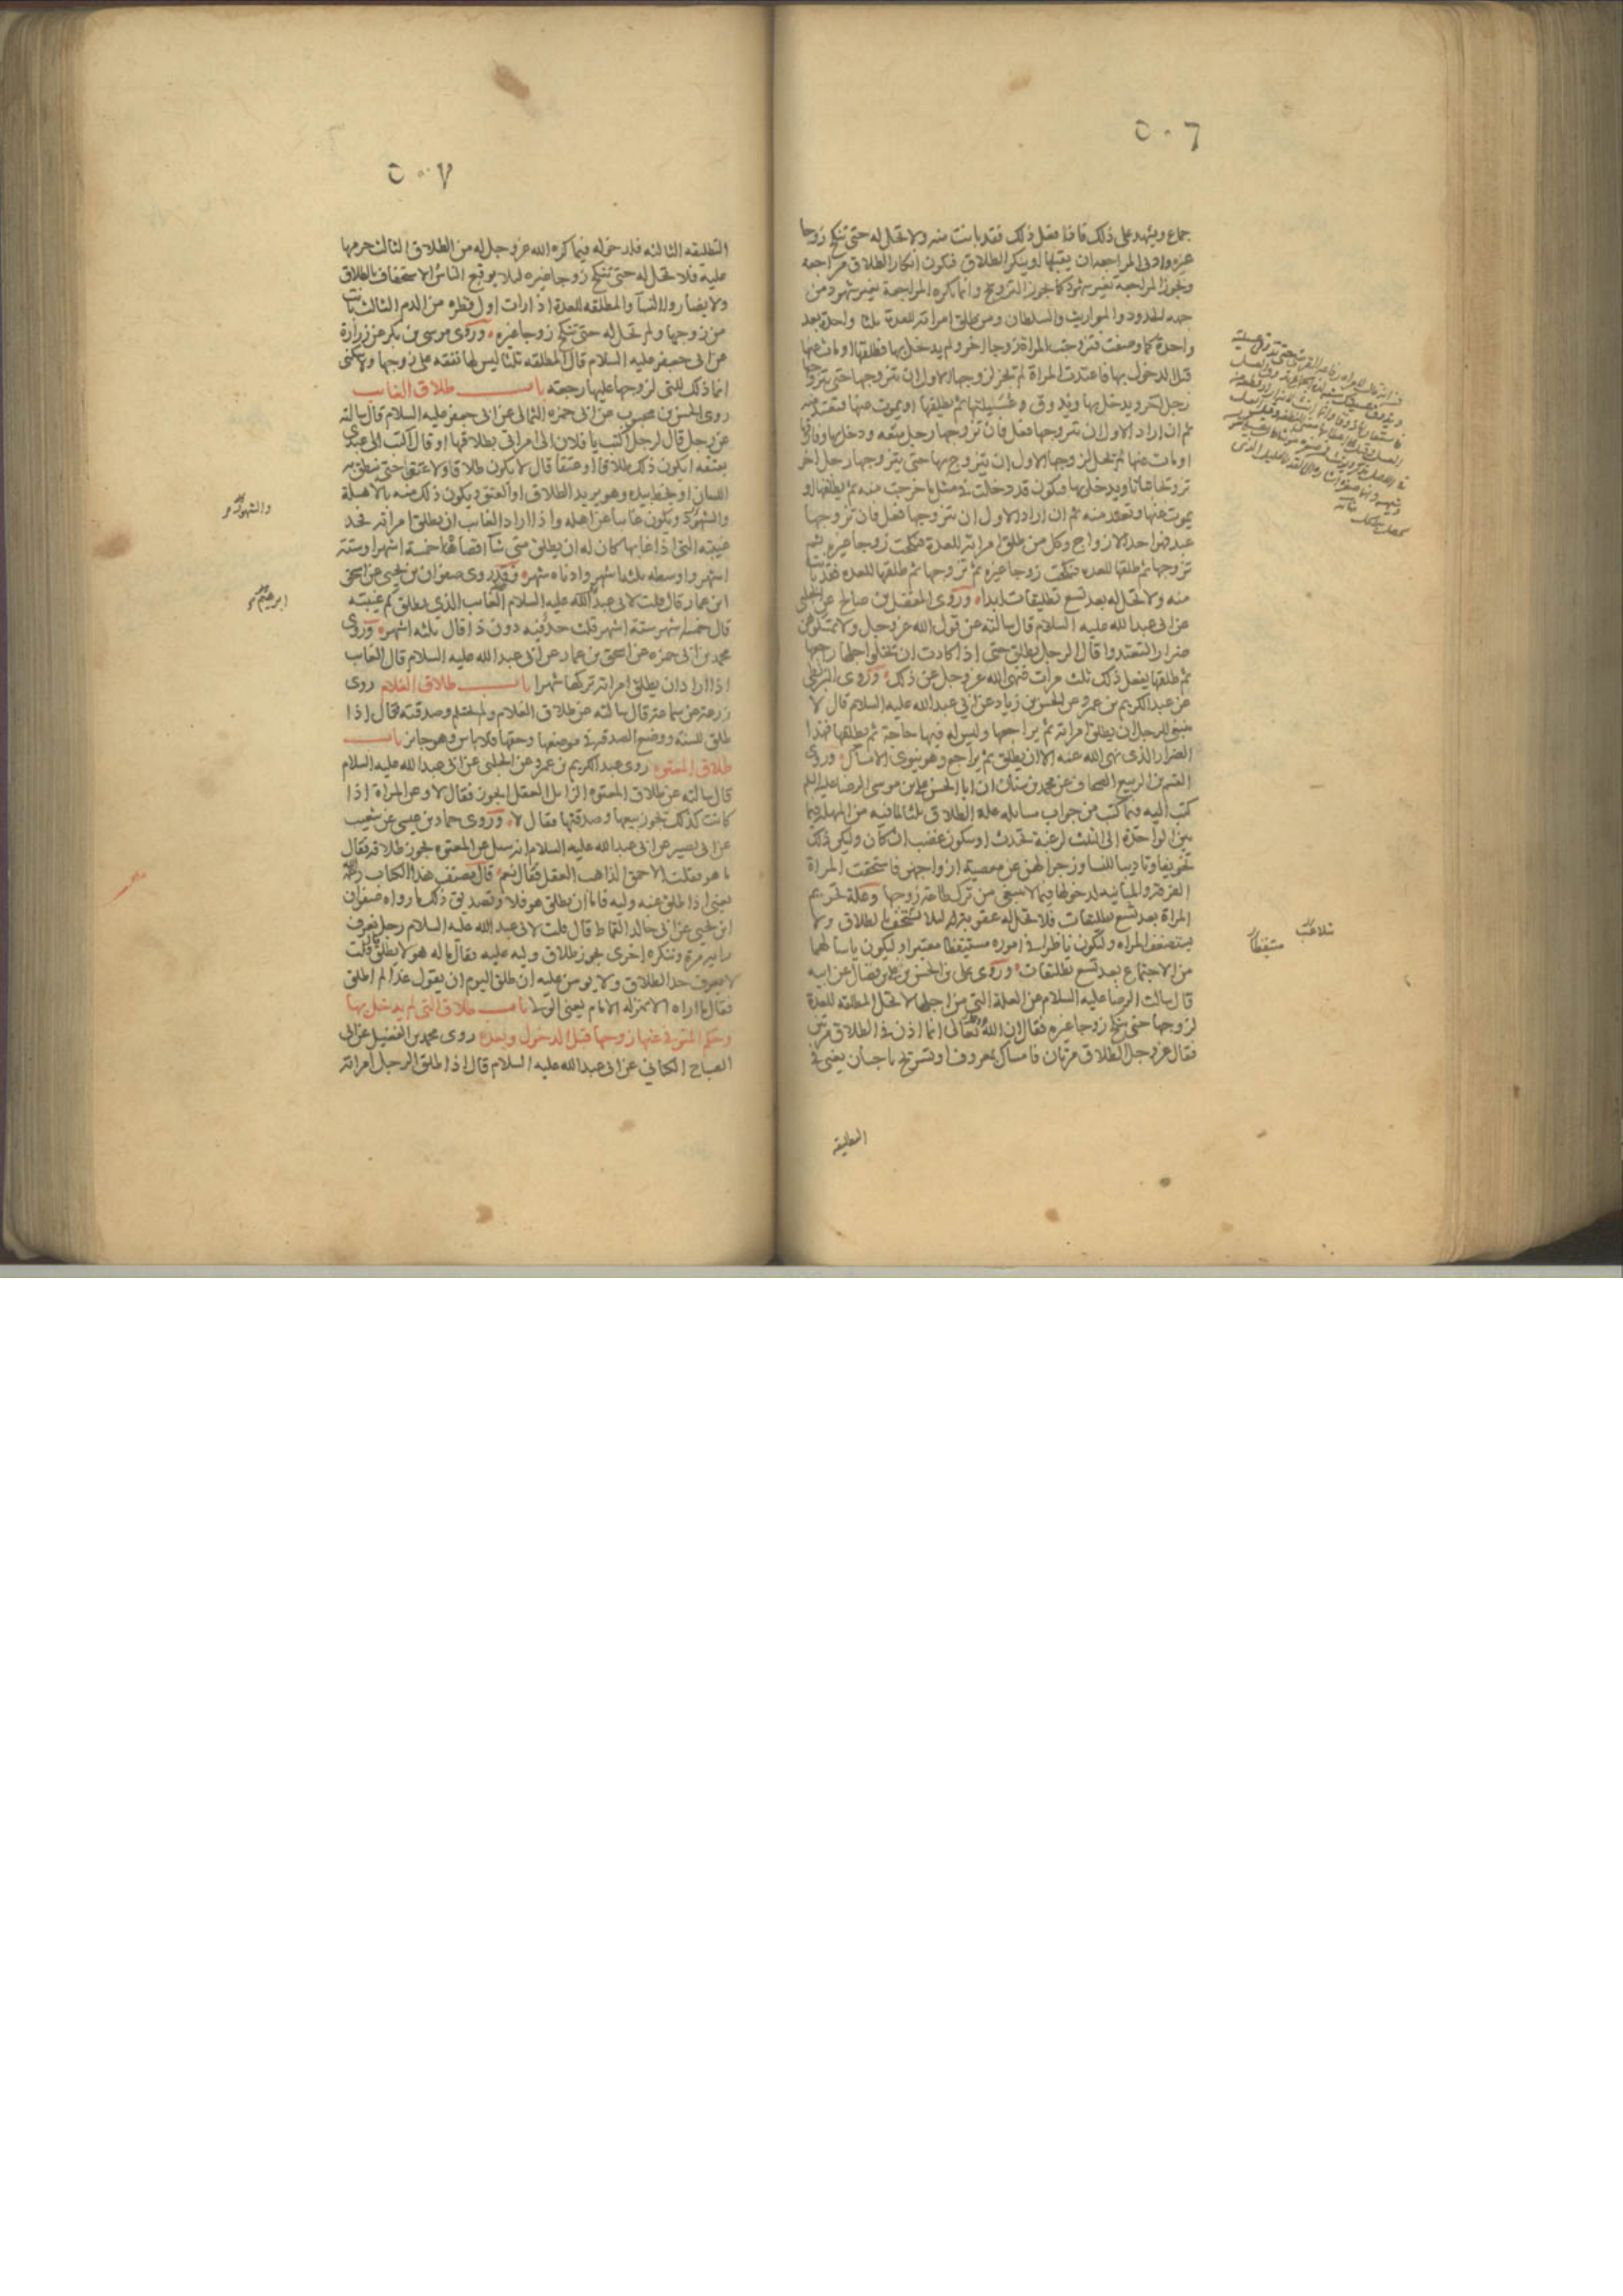 ٥٠٦
جماع ويشهد على ذلك فاذا فعل ذلك فقد بانت منه ولا تحل له حتى تنكح زوجا
غيره وادنى المراجعة ان يقبلها او ينكر الطلاق فيكون انكار الطلاق مراجعه
وتجوز المراجعة بغير شهود كما يجوز التزويج وانما تكره المراجعة بغير شهود من
جهه الحدود والمواريث والسلطان ومن طلق امراته للعدة ثلثا واحدة بعد
واحدة كما وصفت فتزوجت المراة زوجا اخر ولم يدخل بها فطلقها او مات عنها
قبل الدخول بها فاعتدت المراة لم يجز لزوجها الاول ان يتزوجها حتى يتزوجها
رجل اخر ويدخل بها ويذوق عسيلتها ثم يطلقها او يموت عنها فتعتد منه
ثم ان اراد الاول ان يتزوجها فعل فان تزوجها رجل متعه ودخل بها وفارقها
او مات عنها لم تحل لزوجها الاول ان يتزوج بها حتى يتزوجها رجل اخر
تزويجا بتاتا ويدخل بها فتكون قد دخلت في مثل ما خرجت منه ثم يطلقها او
يموت عنها وتعتد منه ثم ان اراد الاول ان يتزوجها فعل فان تزوجها
عبد فهو احد الازواج وكل من طلق امراته للعدة فنكحت زوجا غيره ثم
تزوجها ثم طلقها للعده فنكحت زوجا غيره ثم تزوجها ثم طلقها للعده فقد بانت
منه ولا تحل له بعد تسع تطليقات ابدا وروى المفضل بن صالح عن الحلبي
عن ابي عبد الله عليه السلام قال سالته عن قول الله عز وجل ولا تمسكوهن
ضرارا لتعتدوا قال الرجل يطلق حتى اذا كادت ان يخلوا اجلها راجعها
ثم طلقها يفعل ذلك ثلث مرات فنهى الله عز وجل عن ذلك وروى البزنطي
عن عبد الكريم بن عمرو عن الحسن بن زياد عن ابي عبد الله عليه السلام قال لا
ينبغي للرجل ان يطلق امراته ثم يراجعها وليس له فيها حاجة ثم يطلقها فهذا
الضرار الذي نهى الله عنه الا ان يطلق ثم يراجع وهو ينوي الامساك وروى
القسم بن الربيع الصحاف عن محمد بن سنان ان ابا الحسن علي بن موسى الرضا عليه السلم
كتب اليه فيما كتب من جواب مسايله علة الطلاق ثلثا لما فيه من المهلة فيما
بين الواحدة الى الثلث لرغبة تحدث او سكون غضب ان كان وليكن ذلك
تخويفا وتاديبا للنسا وزجرا لهن عن معصية ازواجهن فاستحقت المراة
الفرقة والمباينة لدخولها فيما لا ينبغي من ترك طاعة زوجها وعلة تحريم
المراة بعد تسع تطليقات فلا تحل له عقوبة له ليلا يستخف بالطلاق ولا
يستضعف المراه وليكون ناظرا في اموره مستيقظا معتبرا وليكون ياسا لهما
من الاجتماع بعد تسع تطليقات وروى علي بن الحسن بن علي بن فضال عن ابيه
قال سالت الرضا عليه السلام عن العلة التي من اجلها لا تحل المطلقه للعدة
لزوجها حتى تنكح زوجا غيره فقال ان الله تعالى انما اذن في الطلاق مرتين
فقال عز وجل الطلاق مرتان فامساك بمعروف او تسريح باحسان يعني في
التطليقه
متيقظا
٥٠٧
التطليقه الثالثه فلدخوله فيما كره الله عز وجل له من الطلاق الثالث حرمها
عليه فلا تحل له حتى تنكح زوجا غيره ليلا يوقع الناس الاستخفاف بالطلاق
ولا يضاروا النسآ والمطلقه للعدة اذا رات اول قطره من الدم الثالث بانت
من زوجها ولم تحل له حتى تنكح زوجا غيره وروى موسى بن بكر عن زرارة
عن ابى جعفر عليه السلام قال المطلقه ثلثا ليس لها نفقه على زوجها ولا سكنى
انما ذلك للتي لزوجها عليها رجعة باب طلاق الغايب
روى الحسن بن محبوب عن ابى حمزه الثمالى عن ابى جعفر عليه السلام قال سالته
عن رجل قال لرجل اكتب يا فلان الى امراتي بطلاقها او قال اكتب الى عبدى
بعتقه ايكون ذلك طلاقا او عتقا قال لا يكون طلاقا ولا عتقا حتى ينطق به
اللسان او يخط بيده وهو يريد الطلاق او العتق ويكون ذلك منه بالاهلة
والشهود ويكون غايبا عن اهله واذا اراد الغايب ان يطلق امراته فحد
غيبته التي اذا غابها كان له ان يطلق متى شآ اقصاها خمسة اشهر او ستة
اشهر واوسطه ثلثة اشهر وادناه شهر وقد روى صفوان بن يحيى عن اسحق
ابن عمار قال قلت لابى عبد الله عليه السلام الغايب الذي يطلق كم غيبته
قال خمسة اشهر ستة اشهر قلت حد فيه دون ذا قال ثلثه اشهر وروى
محمد بن ابى حمزه عن اسحق بن عمار عن ابى عبد الله عليه السلام قال الغايب
اذا اراد ان يطلق امراته تركها شهرا باب طلاق الغلام روى
زرعة عن سماعة قال سالته عن طلاق الغلام ولم يحتلم وصدقته فقال اذا
طلق للسنة ووضع الصدقة في موضعها وحقها فلا باس وهو جايز باب
طلاق المعتوه روى عبد الكريم بن عمرو عن الحلبى عن ابى عبد الله عليه السلام
قال سالته عن طلاق المعتوه الزايل العقل ايجوز فقال لا وعن المراة اذا
كانت كذلك يجوز بيعها وصدقتها فقال لا وروى حماد بن عيسى عن شعيب
عن ابى بصير عن ابى عبد الله عليه السلام انه سئل عن المعتوه يجوز طلاقه فقال
ما هو فقلت الاحمق الذاهب العقل فقال نعم قال مصنف هذا الكتاب
يعنى اذا طلق عنه وليه فاما ان يطلق هو فلا وتصديق ذلك ما رواه صفوان
ابن يحيى عن ابى خالد القماط قال قلت لابى عبد الله عليه السلام رجل يعرف
رايه مرة وينكره اخرى يجوز طلاق وليه عليه فقال ما له هو لا يطلق قلت
لا يعرف حد الطلاق ولا يومن عليه ان طلق اليوم ان يقول غدا لم اطلق
فقال ما اراه الا بمنزله الامام يعنى الولى باب طلاق التي لم يدخل بها
وحكم المتوفى عنها زوجها قبل الدخول وبعده روى محمد بن الفضيل عن ابى
الصباح الكناني عن ابى عبد الله عليه السلام قال اذا طلق الرجل امراته
والشهود